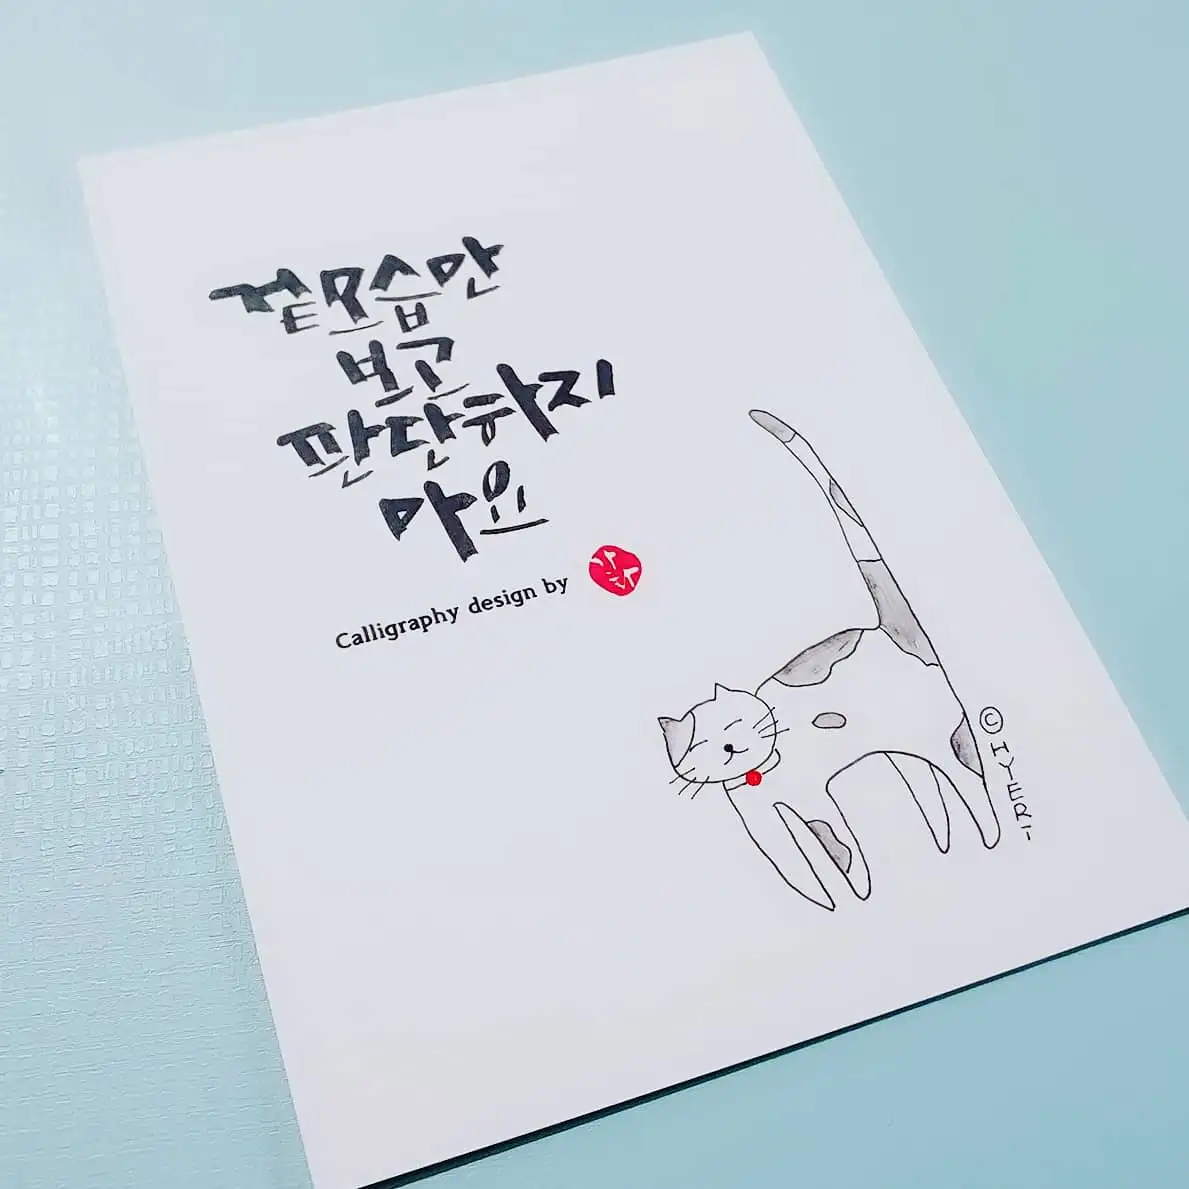 겉모습만
보고
판단하지
마요
Calligraphy design by
© IYERI